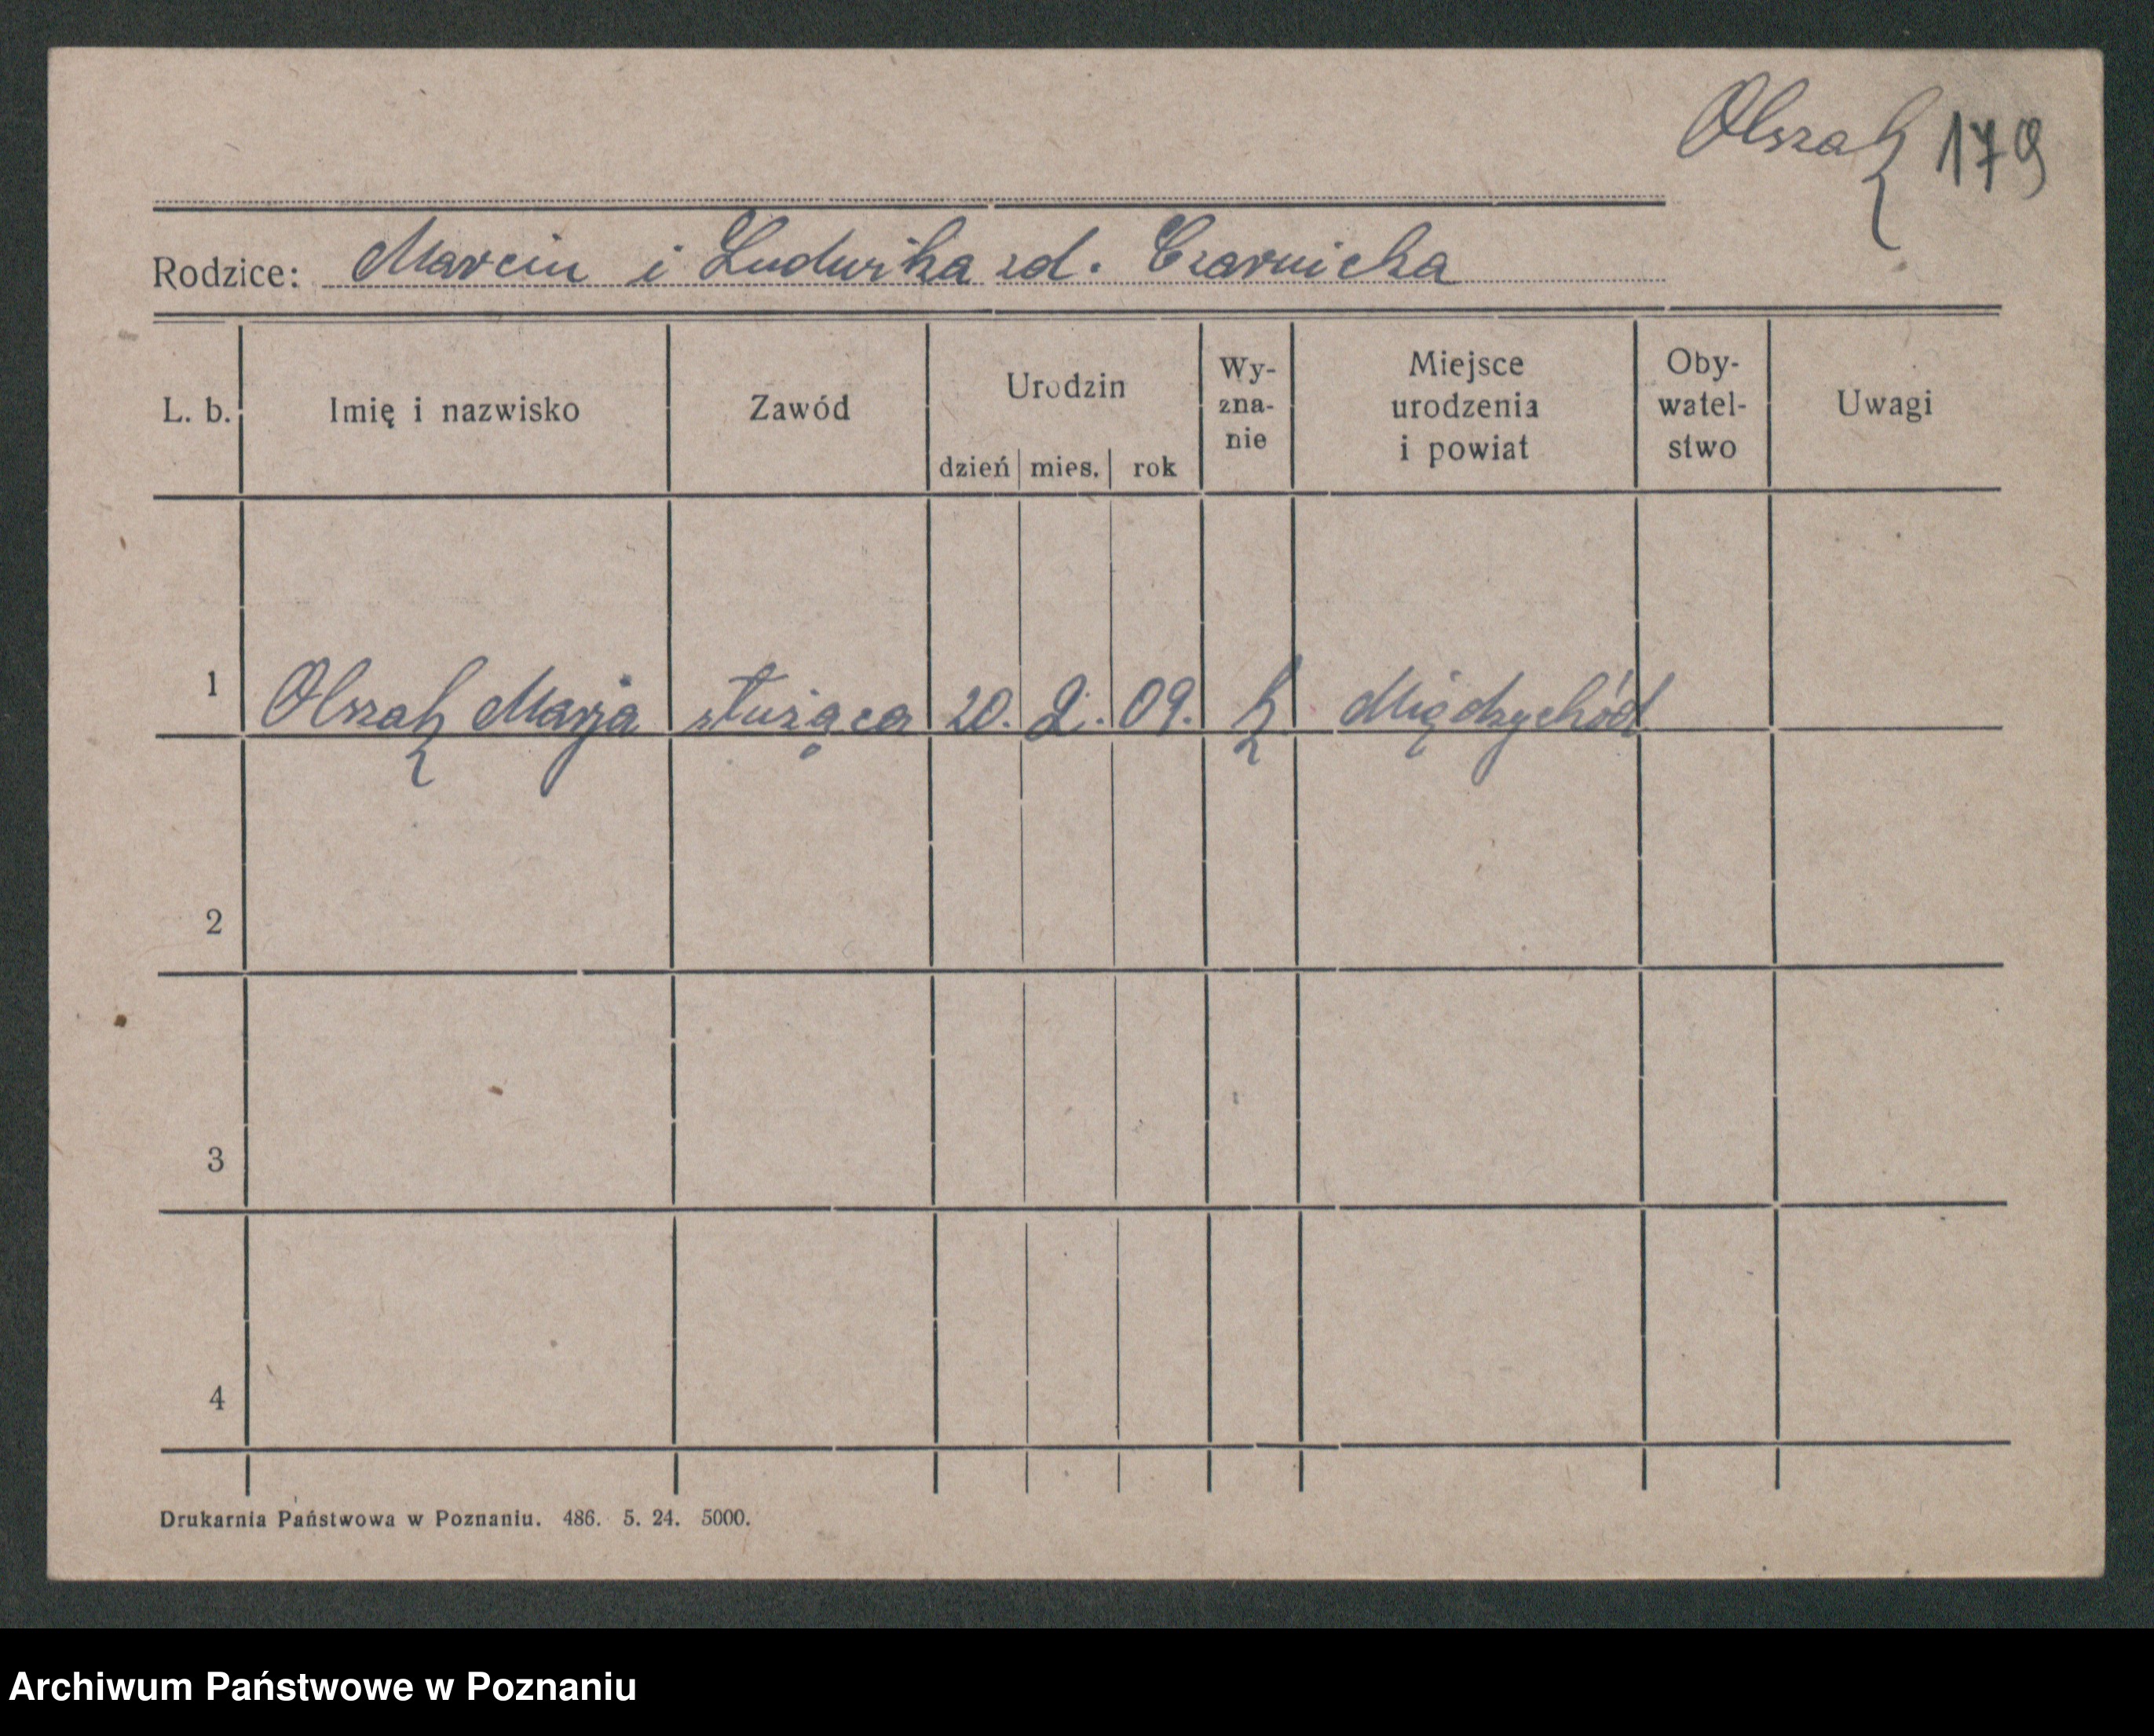 Olszak 179
Rodzice: Marcin i Ludwika zd. Czarnicka
L. b. Imię i nazwisko Zawód Urodzin dzień mies. rok Wy-zna-nie Miejsce urodzenia i powiat Oby-watel-stwo Uwagi
1 Olszak Marja służąca 20. 2. 09. k Międzychód
2
3
4
Drukarnia Państwowa w Poznaniu. 486. 5. 24. 5000.
Archiwum Państwowe w Poznaniu